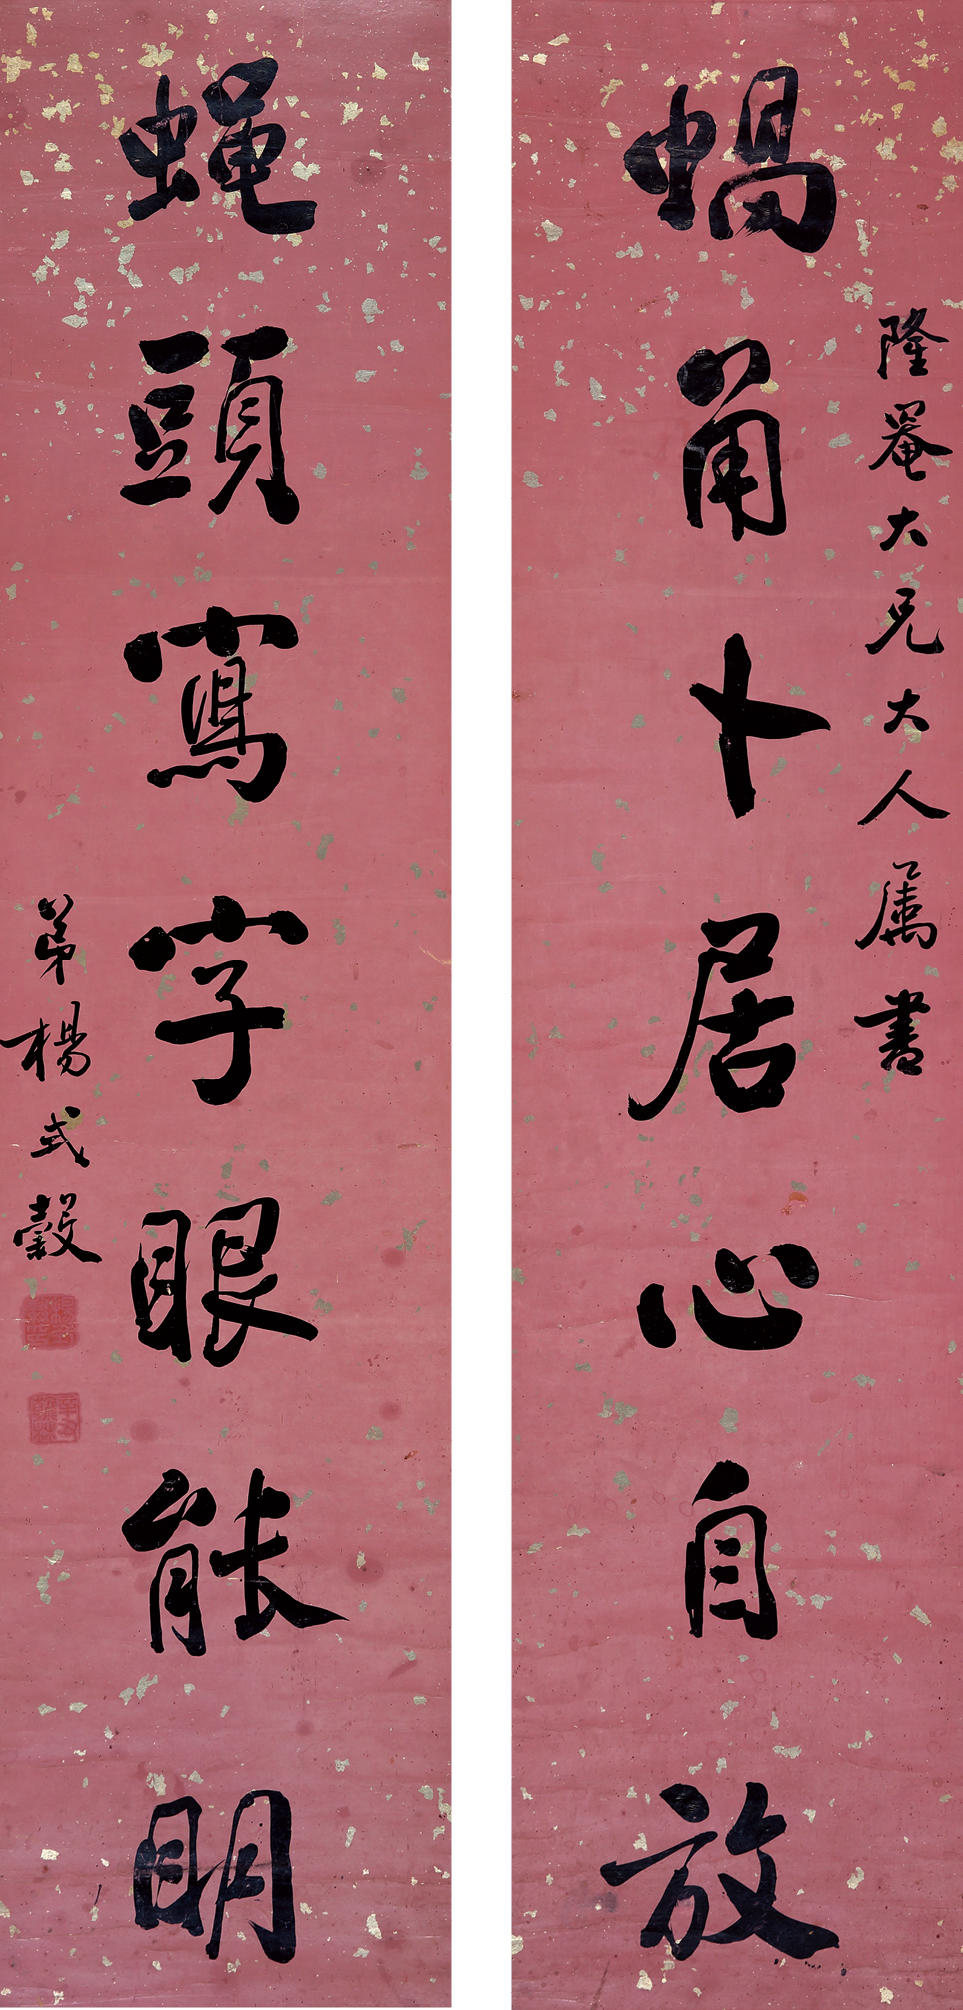 隆菴大兄大人属書
蝸角卜居心自放
蝇頭寫字眼能明
弟楊式穀